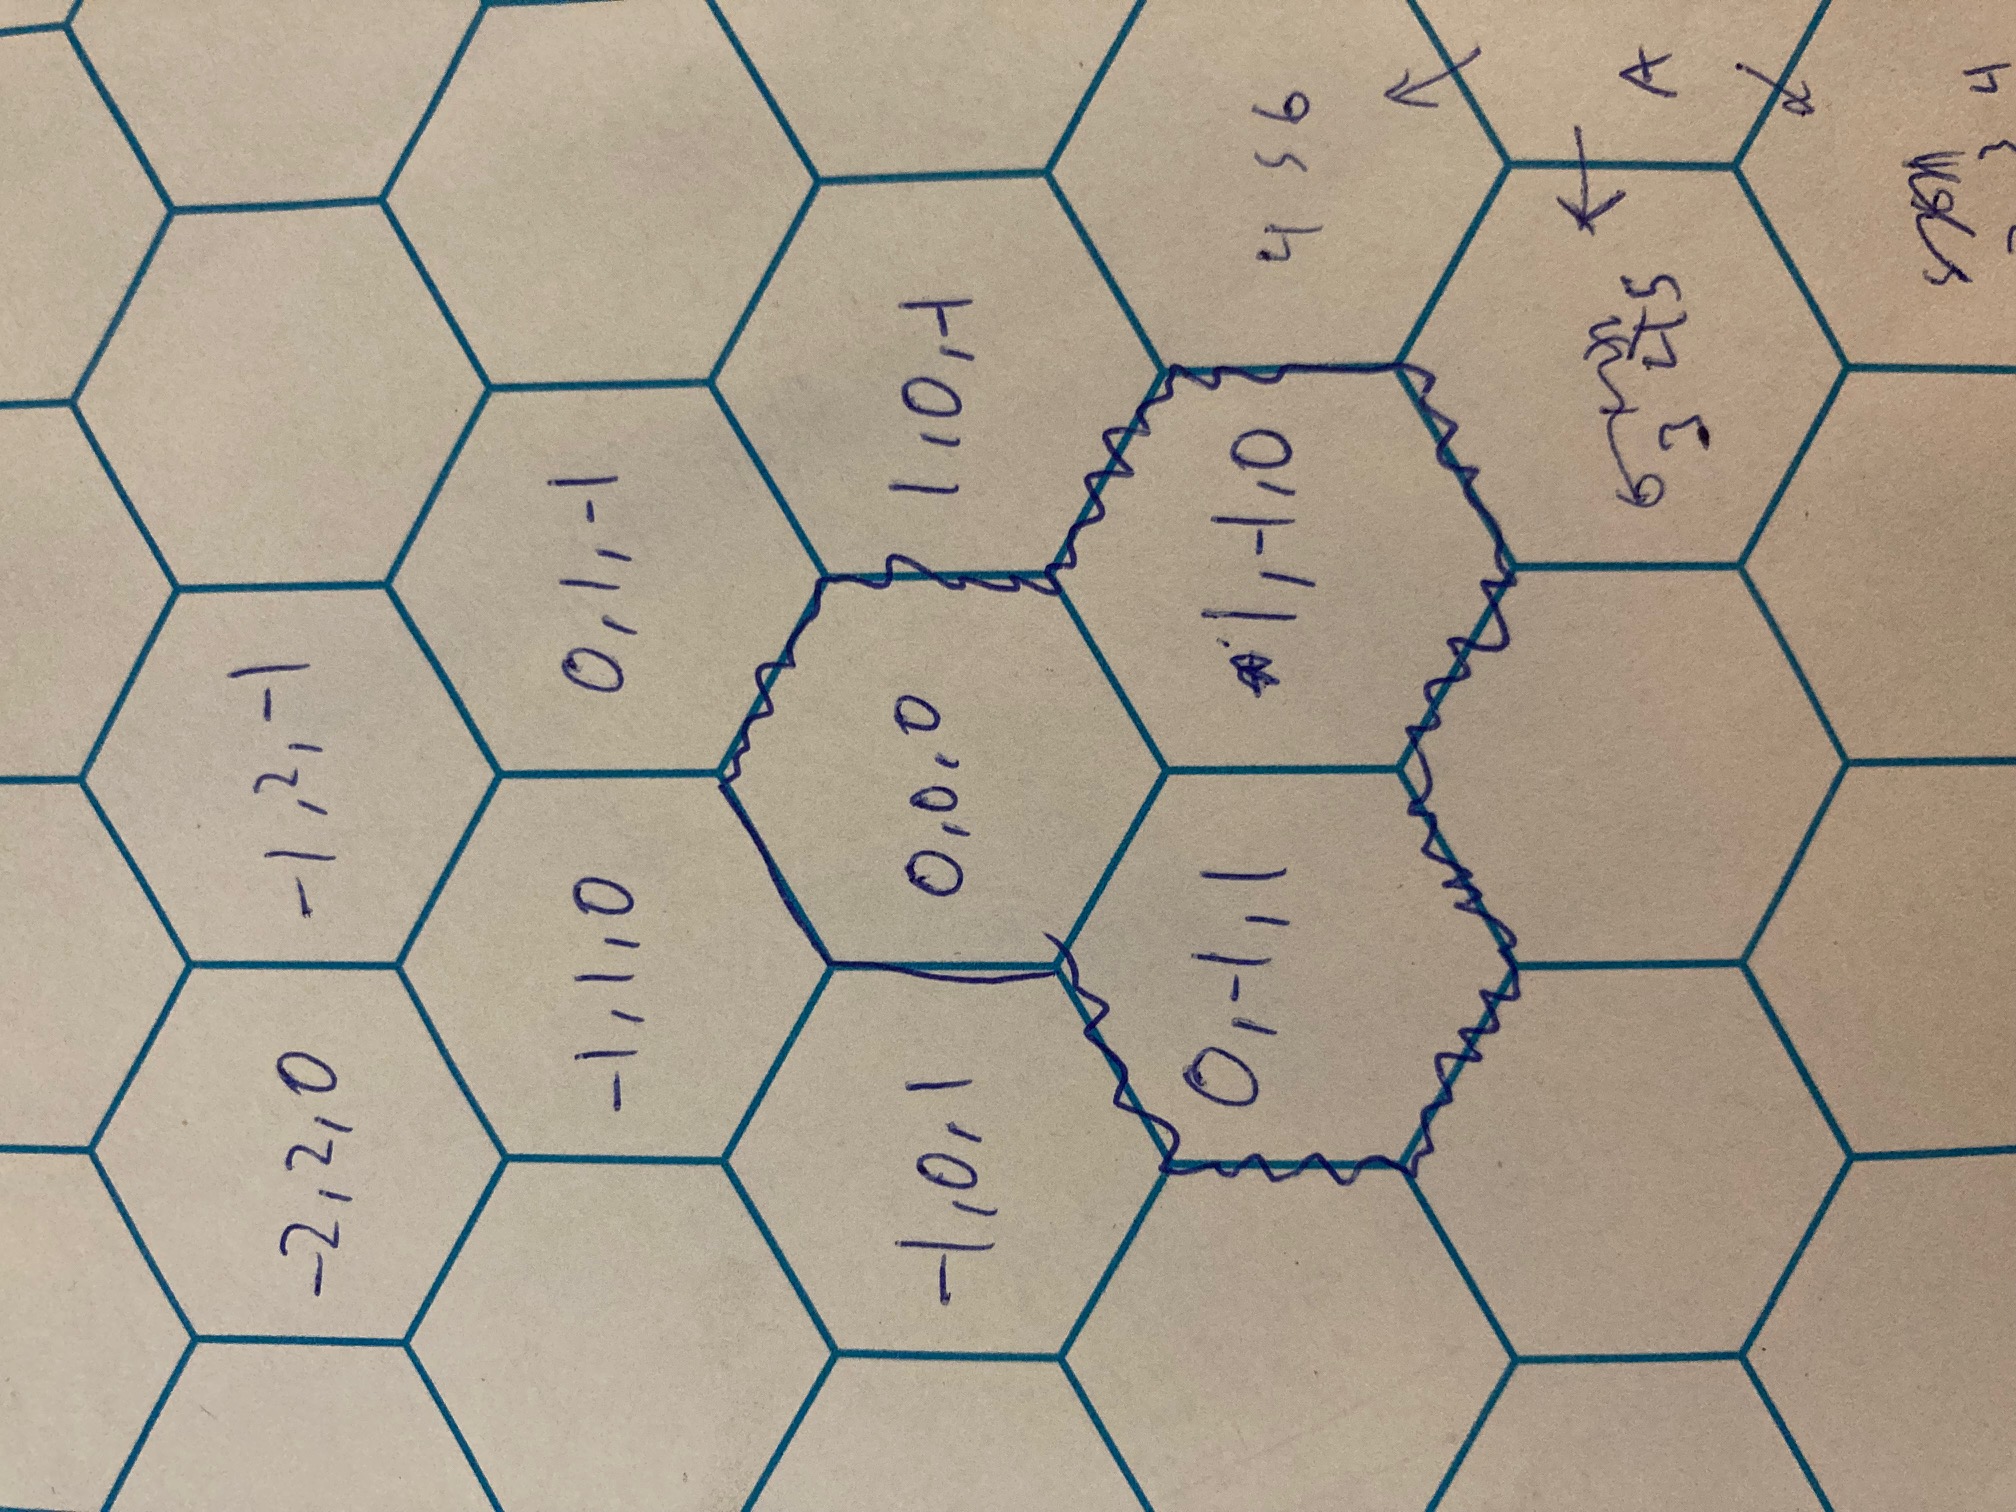 -2,2,0 -1,2,-1
-1,1,0 0,1,-1
-1,0,1 0,0,0 1,0,-1
0,-1,1 1,-1,0 4 5 6
3 4 5 A
3 4